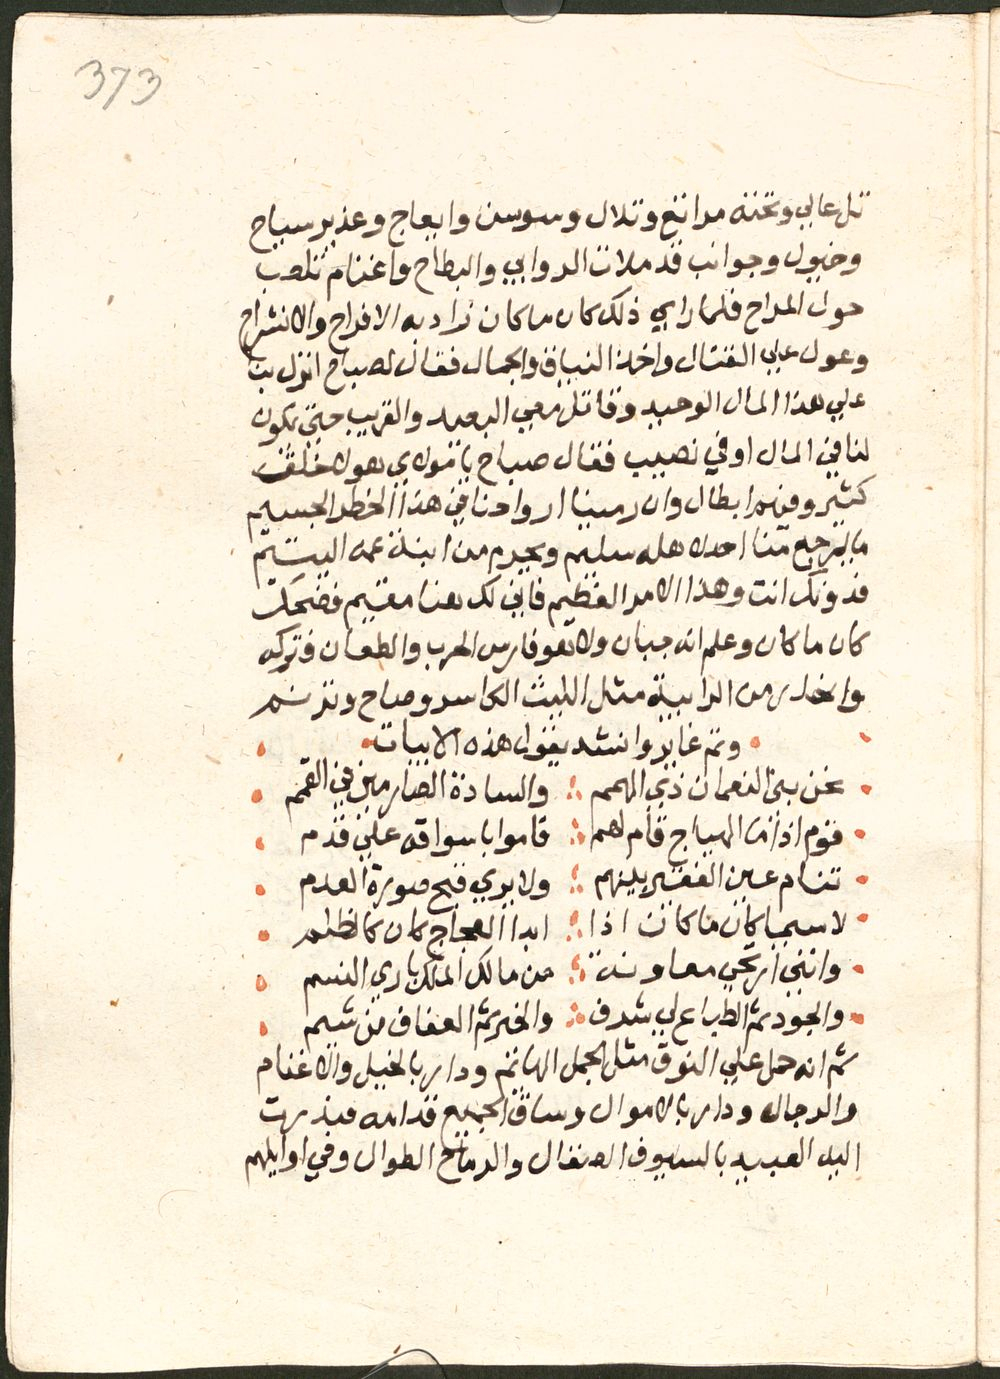 373
تل عالي وتحته مراتع وتلال وسوسن وابعاج وغدير سياح
وخيول وجوانب قد ملات الروابي والبطاح واغنام تلعب
حول المراح فلما راي ذلك كان ما كان زاد به الافراح والانشراح
وعول علي القتال واخذ النياق والجمال فقال لصباح انزل بنا
علي هذا المال الوحيد وقاتل معي البعيد والقريب حتي نكون
لنا في المال اوفي نصيب فقال صباح يا مولاي هولا خلق
كثير وفيهم ابطال وان رمينا ارواحنا في هذا الخطر الجسيم
ما يرجع منا احد لاهله سليم ويحرم من ابنة عمه اليتيم
فدونك انت وهذا الامر العظيم فاني لك هنا مقيم فضحك
كان ما كان وعلم انه جبان ولا هو فارس الحرب والطعان فتركه
وانحدر من الرابية مثل الليث الكاسر وصاح وترنم
وتم غاير وانشد يقول هذه الابيات
نحن بني النعمان ذي الهمم والسادة الضارمين في القمم
قوم اذا ما الهياج قام لهم قاموا باسواقه علي قدم
تنام عين الفقير بينهم ولا يري قبح صورة العدم
لا سيما كان ما كان اذا ابدا العجاج كان كالظلم
وانني ارتجي معاونة من مالك الملك باري النسم
والجود ثم الطباع لي شرف والخير ثم العفاف من شيم
ثم انه حمل علي النوق مثل الجمل الهائم ودار بالخيل والاغنام
والرجال ودار بالاموال وساق الجميع قدامه فبدرت
اليه العبيد بالسيوف الصقال والرماح الطوال وفي اوايلهم